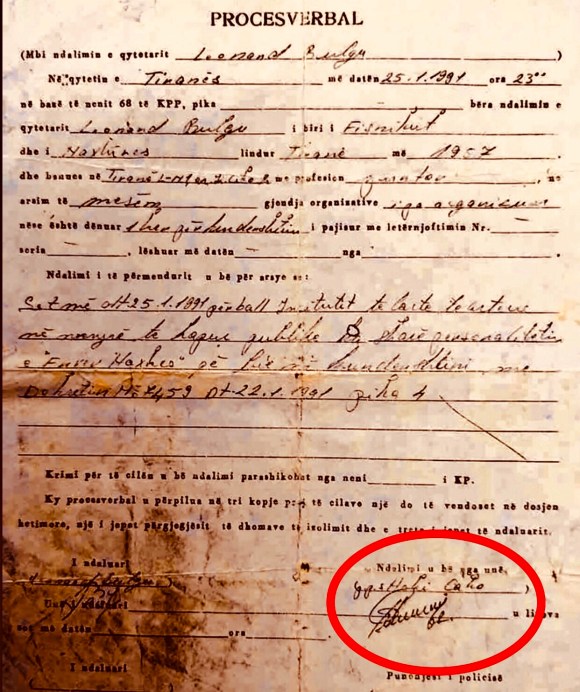 PROCESVERBAL
(Mbi ndalimin e qytetarit Leonard Bulgu )
Në qytetin e Tiranës më datën 25.1.1991 ora 23°°
në bazë të nenit 68 të KPP, pika bëra ndalimin e
qytetarit Leonard Bulgu i biri i Fiqiriut
dhe i lindur Tiranë më 1957
dhe banues në Tiranë me profesion
arsim të mesëm gjendja organizative i pa organizuar
nëse është dënuar 1 herë për kundërshtim i pajisur me letërnjoftimin Nr.
seria , lëshuar më datën nga
Ndalimi i të përmendurit u bë për arsye se:
Sot më dt 25.1.1991 përball Institutit të larte të arteve
në mënyrë të hapur publike shau personalitetin
e "Enver Hoxhes" që bie në kundërshtim me
Dekretin Nr 7459 Dt-22.1.1991 pika 4
Krimi për të cilën u bë ndalimi parashikohet nga neni i KP.
Ky procesverbal u përpilua në tri kopje prej të cilave një do të vendoset në dosjen
hetimore, një i jepet përgjegjësit të dhomave të izolimit dhe e treta i jepet të ndaluarit.
I ndaluari Ndalimi u bë nga unë,
Cako )
Unë i ndaluari u lirova
sot më datën ora
I ndaluari Punonjësi i policisë